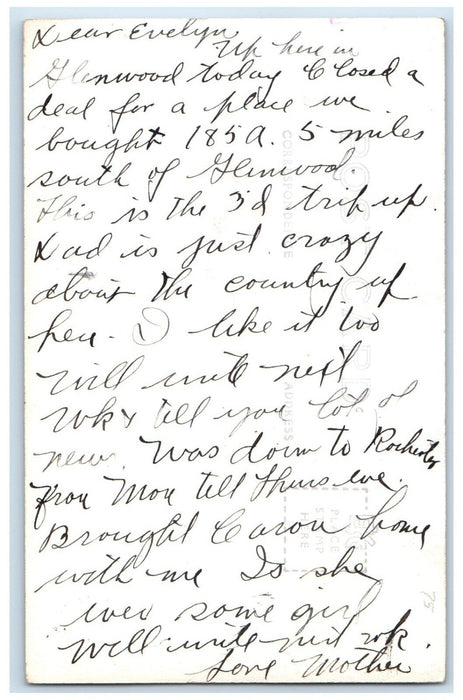 Dear Evelyn
Up here in
Glenwood today Closed a
deal for a place we
bought 185 A. 5 miles
south of Glenwood.
This is the 3'd trip up.
Dad is just crazy
about the country up
here. I like it too
will write next
wk & tell you lot of
news. Was down to Rochester
from Mon tell Thurs eve.
Brought Caron home
with me Is she
ever some girl
will write next wk.
Love Mother
POST CARD
CORRESPONDENCE
ADDRESS
PLACE
STAMP
HERE
75